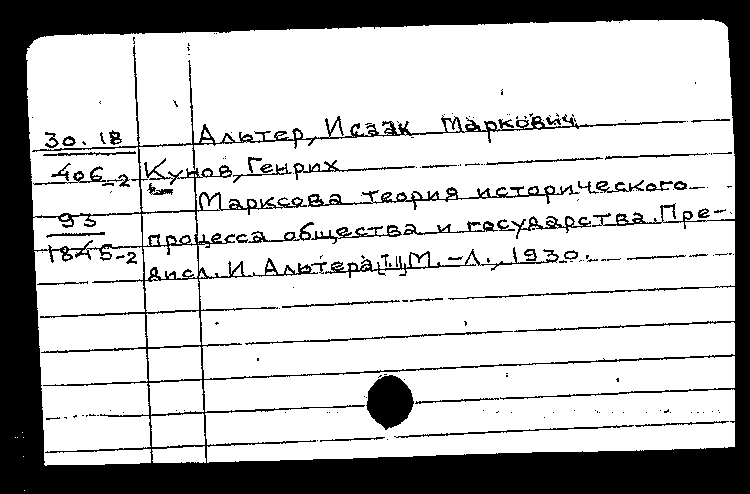 30.18 Альтер, Исаак Маркович
406-2 Кунов, Генрих
Марксова теория исторического
93 процесса общества и государства. Пре-
1845-2 дисл. И. Альтера, т. II, М.-Л., 1930.